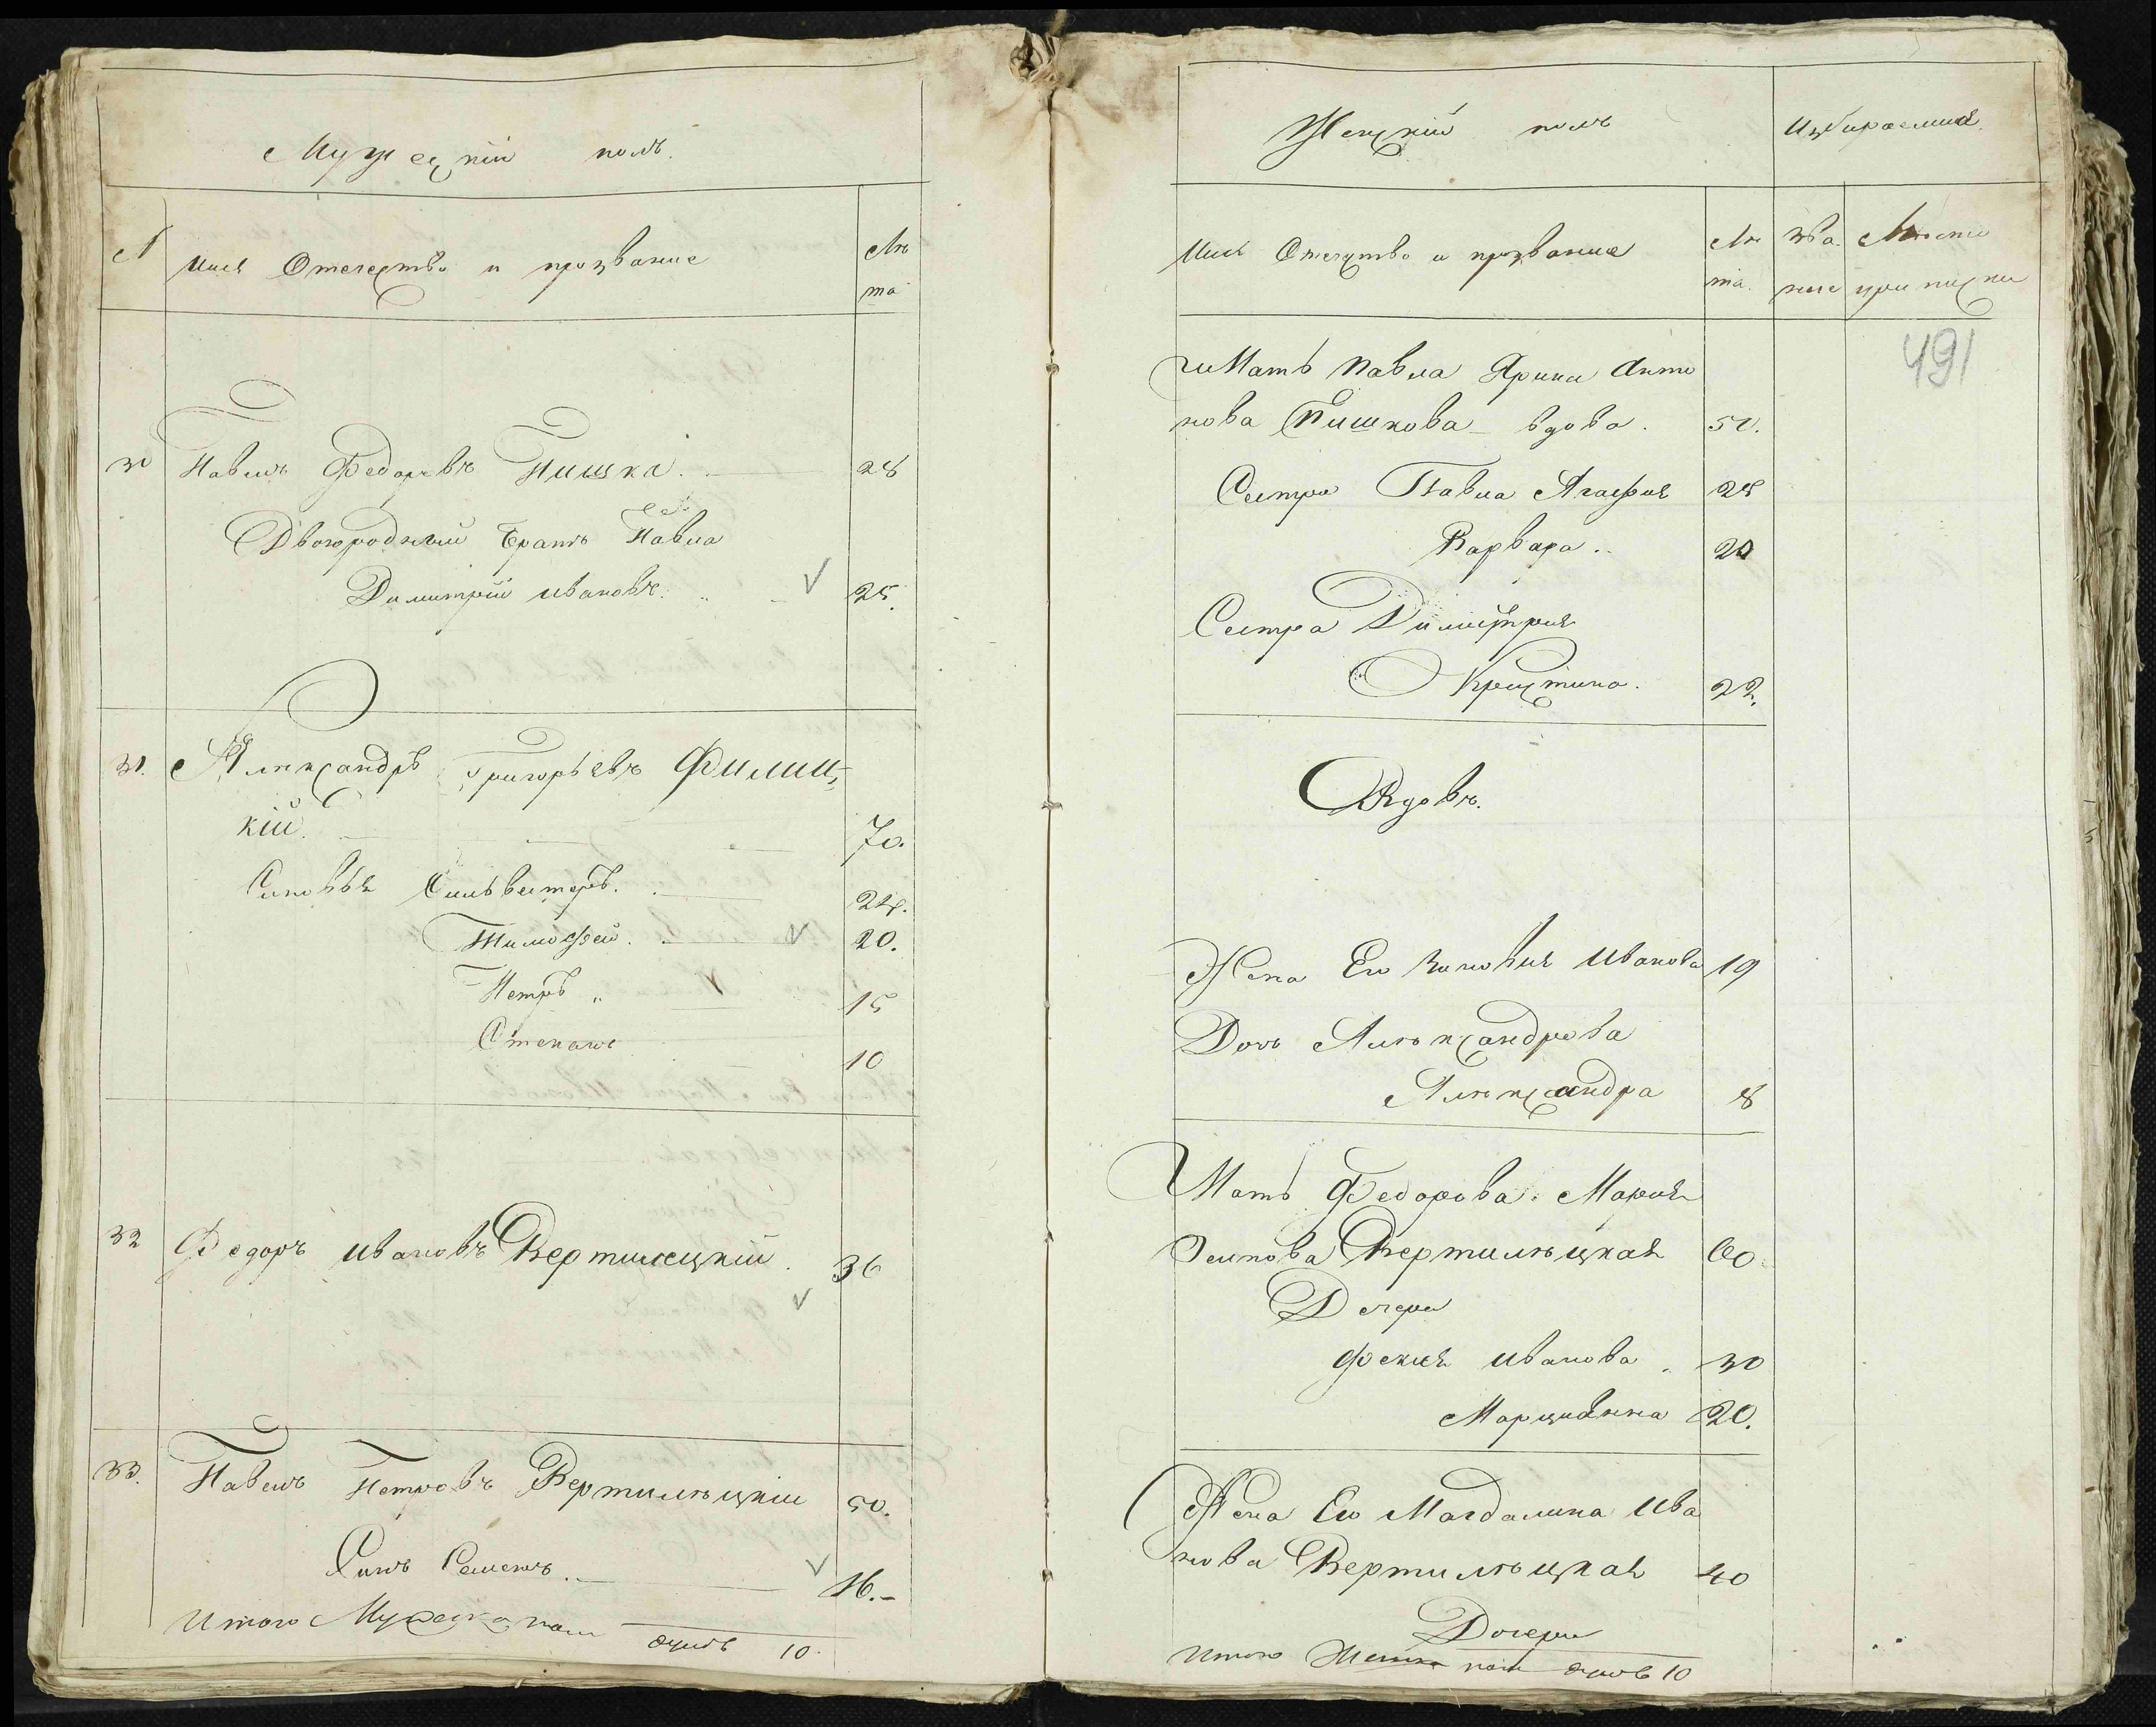 Мужескій полъ.
N
Имя Отечество и прозваніе
Лѣ
та
30 Павелъ Федоровъ Пишка. 28
Двоюродный Братъ Павла
Димитрій Ивановъ. 25.
31. Александръ Григорьевъ Филип
кій. 70.
Сыновья Сильвестръ. 24.
Тимофей. 20.
Петръ „ 15
Степанъ 10
32 Федоръ Ивановъ Вертилецкій. 36
33. Павелъ Петровъ Вертилѣцкій 50.
Сынъ Семенъ. 16.
Итого Мужеска пола душъ 10.
Женскій полъ
Избираемыя
Имя Отечество и прозваніе
Лѣ
та.
Зва.
ніе
Место
приписки
491
Мать Павла Ярина Анто
нова Пишкова вдова. 50.
Сестра Павла Агафія 25
Варвара.. 20
Сестра Димитрія
Кристина. 22.
Вдовъ.
Жена Его Зиновія Иванова 19
Дочь Александрова
Александра 8
Мать Федорова Марія
Осипова Вертилѣцкая 60.
Дочери
Фекля Иванова. 30
Марціянна 20.
Жена Его Магдалина Ива
нова Вертилѣцкая 40
Дочери
Итого Женска пола душъ 10